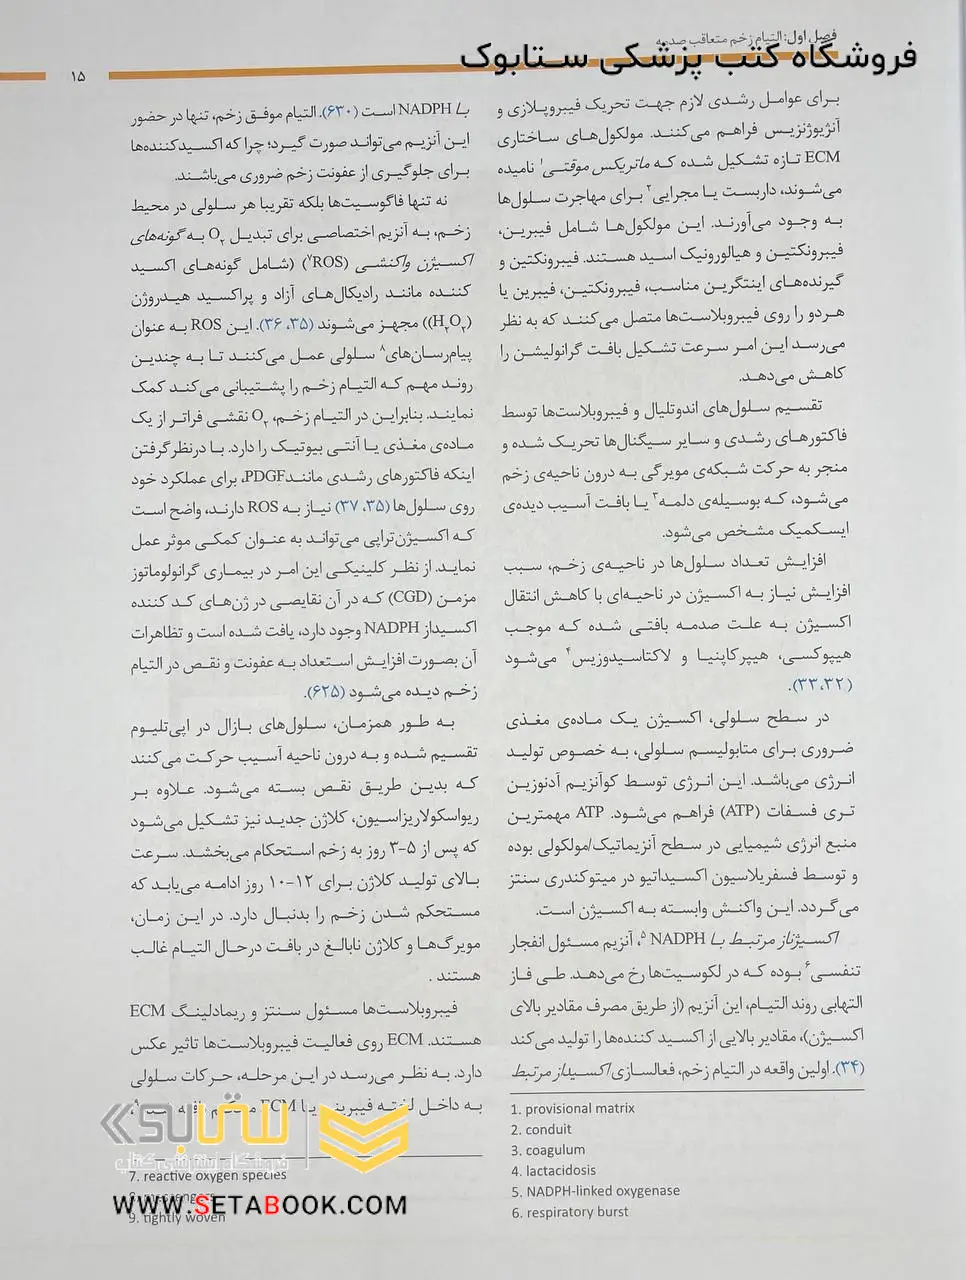 فصل اول: التیام زخم متعاقب صدمه
فروشگاه کتب پزشکی ستابوک
۱۵
برای عوامل رشدی لازم جهت تحریک فیبروپلازی و
آنژیوژنزیس فراهم می‌کنند. مولکول‌های ساختاری
ECM تازه تشکیل شده که ماتریکس موقتی۱ نامیده
می‌شوند، داربست یا مجرایی۲ برای مهاجرت سلول‌ها
به وجود می‌آورند. این مولکول‌ها شامل فیبرین،
فیبرونکتین و هیالورونیک اسید هستند. فیبرونکتین و
گیرنده‌های اینتگرین مناسب، فیبرونکتین، فیبرین یا
هردو را روی فیبروبلاست‌ها متصل می‌کنند که به نظر
می‌رسد این امر سرعت تشکیل بافت گرانولیشن را
کاهش می‌دهد.
تقسیم سلول‌های اندوتلیال و فیبروبلاست‌ها توسط
فاکتورهای رشدی و سایر سیگنال‌ها تحریک شده و
منجر به حرکت شبکه‌ی مویرگی به درون ناحیه‌ی زخم
می‌شود، که بوسیله‌ی دلمه۳ یا بافت آسیب دیده‌ی
ایسکمیک مشخص می‌شود.
افزایش تعداد سلول‌ها در ناحیه‌ی زخم، سبب
افزایش نیاز به اکسیژن در ناحیه‌ای با کاهش انتقال
اکسیژن به علت صدمه بافتی شده که موجب
هیپوکسی، هیپرکاپنیا و لاکتاسیدوزیس۴ می‌شود
(۳۳،۳۲).
در سطح سلولی، اکسیژن یک ماده‌ی مغذی
ضروری برای متابولیسم سلولی، به خصوص تولید
انرژی می‌باشد. این انرژی توسط کوآنزیم آدنوزین
تری فسفات (ATP) فراهم می‌شود. ATP مهمترین
منبع انرژی شیمیایی در سطح آنزیماتیک/مولکولی بوده
و توسط فسفریلاسیون اکسیداتیو در میتوکندری سنتز
می‌گردد. این واکنش وابسته به اکسیژن است.
اکسیژناز مرتبط با NADPH۵، آنزیم مسئول انفجار
تنفسی۶ بوده که در لکوسیت‌ها رخ می‌دهد. طی فاز
التهابی روند التیام، این آنزیم (از طریق مصرف مقادیر بالای
اکسیژن)، مقادیر بالایی از اکسید کننده‌ها را تولید می‌کند
(۳۴). اولین واقعه در التیام زخم، فعالسازی اکسیداز مرتبط
1. provisional matrix
2. conduit
3. coagulum
4. lactacidosis
5. NADPH-linked oxygenase
6. respiratory burst
با NADPH است (۶۳۰). التیام موفق زخم، تنها در حضور
این آنزیم می‌تواند صورت گیرد؛ چرا که اکسیدکننده‌ها
برای جلوگیری از عفونت زخم ضروری می‌باشند.
نه تنها فاگوسیت‌ها بلکه تقریبا هر سلولی در محیط
زخم، به آنزیم اختصاصی برای تبدیل O۲ به گونه‌های
اکسیژن واکنشی (ROS۷) (شامل گونه‌های اکسید
کننده مانند رادیکال‌های آزاد و پراکسید هیدروژن
(H۲O۲)) مجهز می‌شوند (۳۵، ۳۶). این ROS به عنوان
پیام‌رسان‌های۸ سلولی عمل می‌کنند تا به چندین
روند مهم که التیام زخم را پشتیبانی می‌کند کمک
نمایند. بنابراین در التیام زخم، O۲ نقشی فراتر از یک
ماده‌ی مغذی یا آنتی بیوتیک را دارد. با درنظرگرفتن
اینکه فاکتورهای رشدی مانندPDGF، برای عملکرد خود
روی سلول‌ها (۳۵، ۳۷) نیاز به ROS دارند، واضح است
که اکسیژن‌تراپی می‌تواند به عنوان کمکی موثر عمل
نماید. از نظر کلینیکی این امر در بیماری گرانولوماتوز
مزمن (CGD) که در آن نقایصی در ژن‌های کد کننده
اکسیداز NADPH وجود دارد، یافت شده است و تظاهرات
آن بصورت افزایش استعداد به عفونت و نقص در التیام
زخم دیده می‌شود (۶۲۵).
به طور همزمان، سلول‌های بازال در اپی‌تلیوم
تقسیم شده و به درون ناحیه آسیب حرکت می‌کنند
که بدین طریق نقص بسته می‌شود. علاوه بر
ریواسکولاریزاسیون، کلاژن جدید نیز تشکیل می‌شود
که پس از ۵-۳ روز به زخم استحکام می‌بخشد. سرعت
بالای تولید کلاژن برای ۱۲-۱۰ روز ادامه می‌یابد که
مستحکم شدن زخم را بدنبال دارد. در این زمان،
مویرگ‌ها و کلاژن نابالغ در بافت درحال التیام غالب
هستند .
فیبروبلاست‌ها مسئول سنتز و ریمادلینگ ECM
هستند. ECM روی فعالیت فیبروبلاست‌ها تاثیر عکس
دارد. به نظر می‌رسد در این مرحله، حرکات سلولی
به داخل لخته فیبرینی یا ECM
7. reactive oxygen species
8. messengers
9. tightly woven
ستابوک
فروشگاه اینترنتی کتاب
WWW.SETABOOK.COM